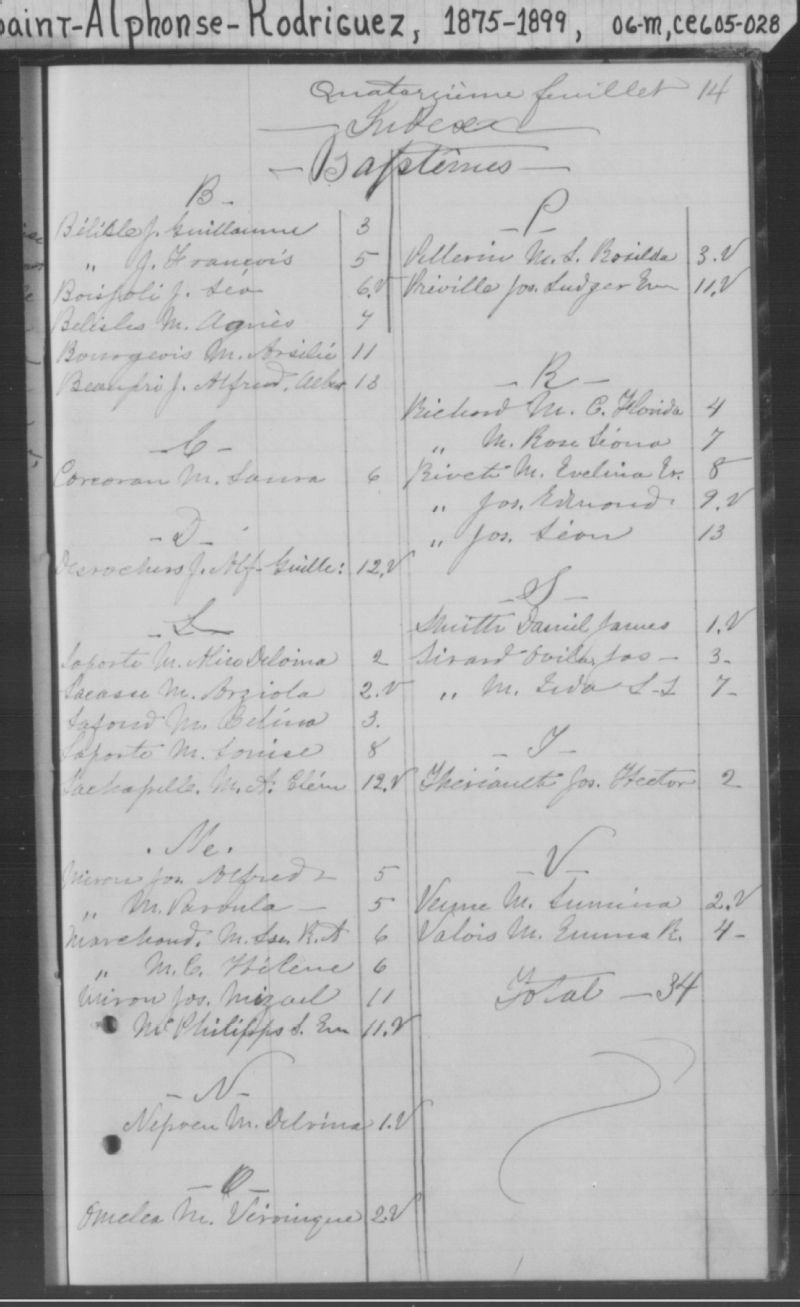 Saint-Alphonse-Rodriguez, 1875-1899, 06-M, CE605-028
Quatorzième feuillet 14
Index
Baptêmes
- B -
Bélisle J. Guillaume 3
„ J. François 5
Boispoli J. Léo 6.V
Belisles M. Agnès 7
Bourgeois M. Arsilié 11
Beaupri J. Alfred. 13
- C -
Corcoran M. Laura 6
- D -
Desrochers J. Alf. Guille: 12.V
- L -
Laporte M. Alice Deloina 2
Lacasse M. Arziola 2.V
Lafond M. Celina 3.
Laporte M. Louise 8
Lachapelle. M. A. Clém 12.V
. M .
Miron Jos. Alfred - 5
„ M. Paroula - 5
Marchand. M. R. A 6
„ M. C. Hélène 6
Miron Jos. Mizael 11
Mc Philipps S. Em 11.V
- N -
Nepveu M. Delvina 1.V
- O -
Omelea M. Véronique 2.V
- P -
Pellerin M. L. Rosilda 3.V
Préville Jos. Ludger Em 11.V
- R -
Richard M. C. Florida 4
„ M. Rose Léona 7
Rivet M. Evelina Er. 8
„ Jos. Edmond. 9.V
„ Jos. Léon 13
- S -
Smith Daniel James 1.V
Sirard Ovila, Jos - 3-
„ M. Leda L-L 7-
- T -
Thériault Jos. Hector 2
- V -
Venne M. Lumina 2.V
Valois M. Emma R. 4-
Total - 34